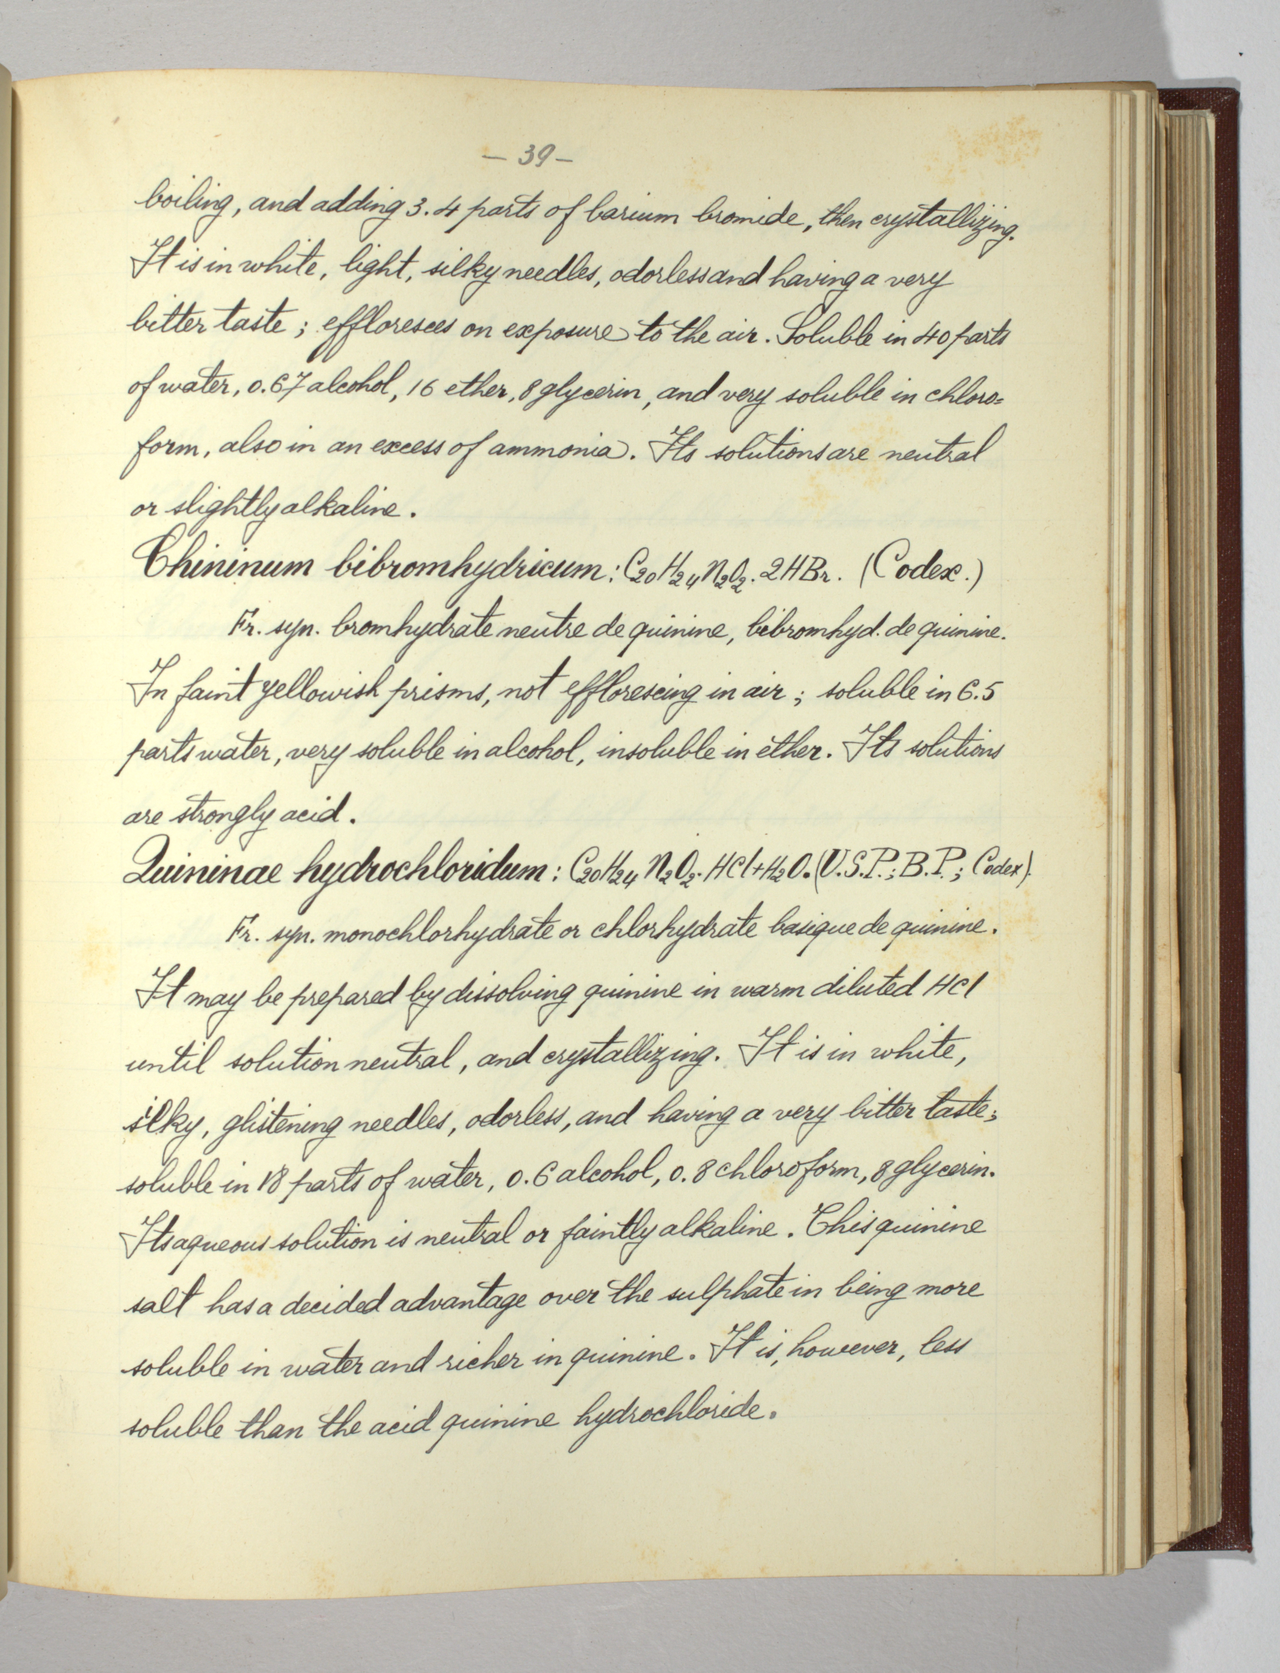 — 39 —
boiling, and adding 3.4 parts of barium bromide, then crystallizing.
It is in white, light, silky needles, odorless and having a very
bitter taste; effloresces on exposure to the air. Soluble in 40 parts
of water, 0.67 alcohol, 16 ether, 8 glycerin, and very soluble in chloro=
form, also in an excess of ammonia. Its solutions are neutral
or slightly alkaline.
Chininum bibromhydricum: C₂₀H₂₄N₂O₂. 2HBr. (Codex.)
Fr. syn. bromhydrate neutre de quinine, bibromhyd. de quinine.
In faint yellowish prisms, not efflorescing in air; soluble in 6.5
parts water, very soluble in alcohol, insoluble in ether. Its solutions
are strongly acid.
Quininae hydrochloridum: C₂₀H₂₄N₂O₂. HCl+H₂O. (U.S.P.; B.P.; Codex).
Fr. syn. monochlorhydrate or chlorhydrate basique de quinine.
It may be prepared by dissolving quinine in warm diluted HCl
until solution neutral, and crystallizing. It is in white,
silky, glistening needles, odorless, and having a very bitter taste;
soluble in 18 parts of water, 0.6 alcohol, 0.8 chloroform, 8 glycerin.
Its aqueous solution is neutral or faintly alkaline. This quinine
salt has a decided advantage over the sulphate in being more
soluble in water and richer in quinine. It is, however, less
soluble than the acid quinine hydrochloride.